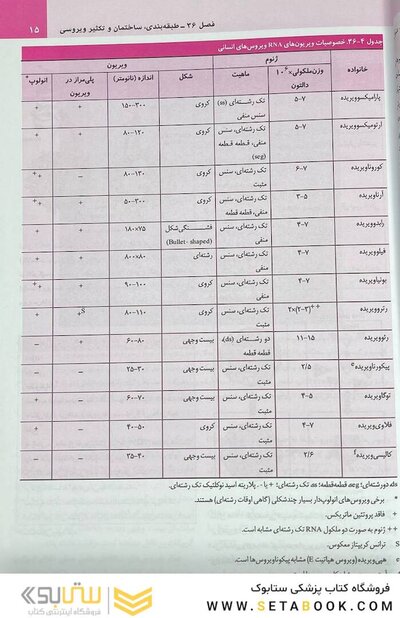 فصل ۳۶ ـ طبقه‌بندی، ساختمان و تکثیر ویروسی ۱۵
جدول ۴-۳۶. خصوصیات ویریون‌های RNA ویروس‌های انسانی
ژنوم ویریون
خانواده وزن‌ملکولی×۱۰۶ دالتون ماهیت شکل اندازه (نانومتر) پلی‌مراز در ویریون انولوپ*
پارامیکسوویریده ۵-۷ تک رشته‌ای (ss) سنس منفی کروی ۱۵۰-۳۰۰ + +
ارتومیکسوویریده ۵-۷ تک رشته‌ای، سنس منفی، قطعه قطعه (seg) کروی ۸۰-۱۲۰ + +
کوروناویریده ۶-۷ تک رشته‌ای، سنس مثبت کروی ۸۰-۱۳۰ – ++
آرناویریده ۳-۵ تک رشته‌ای، سنس منفی، قطعه قطعه کروی ۵۰-۳۰۰ + ++
رابدوویریده ۴-۷ تک رشته‌ای، سنس منفی فشنگی‌شکل (Bullet- shaped) ۱۸۰×۷۵ + +
فیلوویریده ۴-۷ تک رشته‌ای، سنس منفی رشته‌ای ۸۰۰×۸۰ + +
بونیاویریده ۴-۷ تک رشته‌ای، سنس منفی کروی ۹۰-۱۰۰ + ++
رتروویریده ۲×(۲-۳)++ تک رشته‌ای، سنس مثبت کروی ۸۰-۱۱۰ +S +
رئوویریده ۱۱-۱۵ دو رشته‌ای (ds)، قطعه قطعه بیست وجهی ۶۰-۸۰ + –
پیکورناویریده e ۲/۵ تک رشته‌ای، سنس مثبت بیست وجهی ۲۵-۳۰ – –
توگاویریده ۴-۵ تک رشته‌ای، سنس مثبت بیست وجهی ۶۰-۷۰ – +
فلاوی‌ویریده ۴-۷ تک رشته‌ای، سنس مثبت کروی ۴۰-۵۰ – +
کالیسی‌ویریده ۲/۶ تک رشته‌ای، سنس مثبت بیست وجهی ۳۵-۴۰ – –
ds، دورشته‌ای؛ seg، قطعه‌قطعه؛ ss، تک رشته‌ای؛ + یا -، پلاریته اسید نوکلئیک تک رشته‌ای.
* برخی ویروس‌های انولوپ‌دار بسیار چندشکلی (گاهی اوقات رشته‌ای) هستند.
+ فاقد پروتئین ماتریکس.
++ ژنوم به صورت دو ملکول RNA تک رشته‌ای مشابه است.
S ترانس کریپتاز معکوس.
e هپی‌ویریده (ویروس هپاتیت E) مشابه پیکوناویروس‌ها است.
فروشگاه کتاب پزشکی ستابوک
WWW.SETABOOK.COM
ستابوک
فروشگاه اینترنتی کتاب